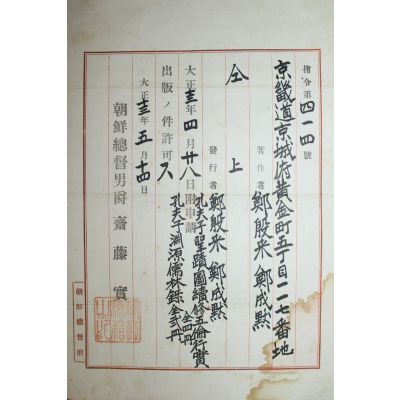 指令第四一四號
京畿道京城府黃金町五丁目一一七番地
著作者 鄭殷采 鄭成默
仝上
發行者 鄭殷采 鄭成默
孔夫子聖蹟圖續修五倫行實 全四冊
孔夫子淵源儒林錄全弐冊
大正十三年四月廿八日附申請
出版ノ件許可ス
大正十三年五月十四日
朝鮮總督男爵 齋藤實
朝鮮總督府